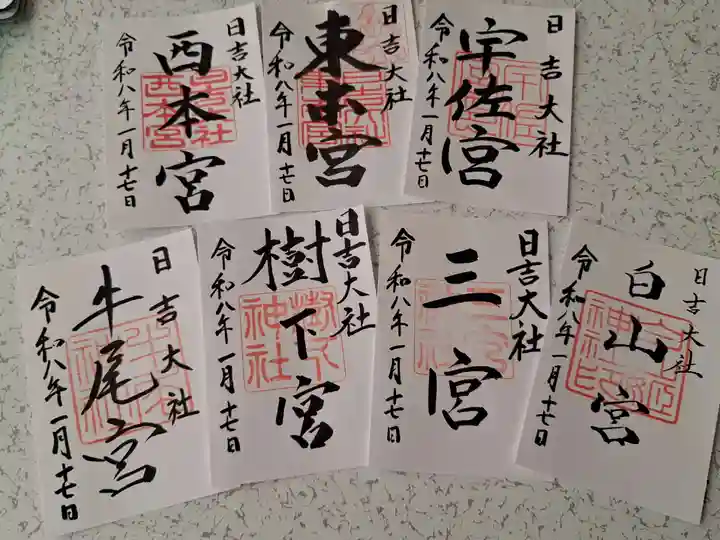 日吉大社
西本宮
令和八年一月十七日
日吉大社
東本宮
令和八年一月十七日
日吉大社
宇佐宮
令和八年一月十七日
日吉大社
牛尾宮
令和八年一月十七日
日吉大社
樹下宮
樹下
神社
令和八年一月十七日
日吉大社
三宮
令和八年一月十七日
日吉大社
白山宮
令和八年一月十七日